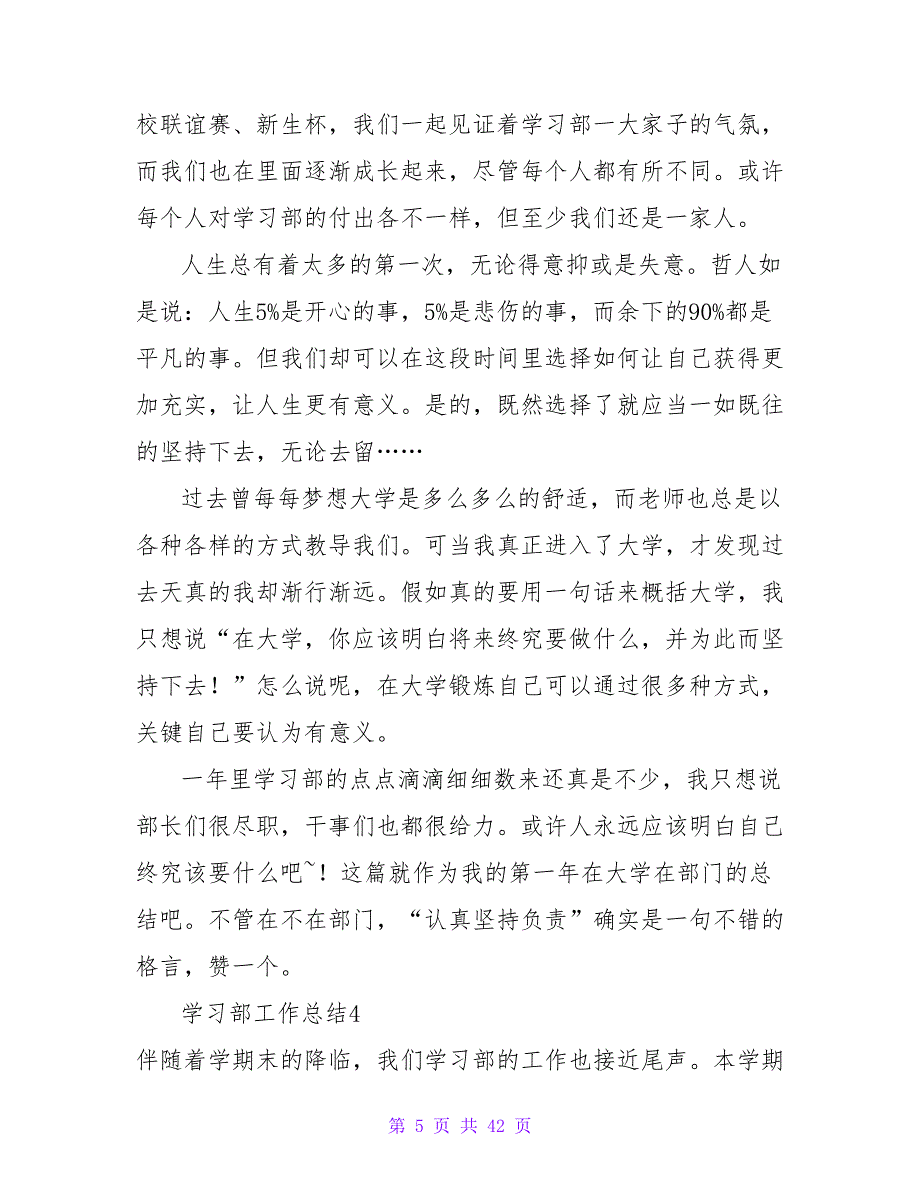 校联谊赛、新生杯，我们一起见证着学习部一大家子的气氛，
而我们也在里面逐渐成长起来，尽管每个人都有所不同。或许
每个人对学习部的付出各不一样，但至少我们还是一家人。
人生总有着太多的第一次，无论得意抑或是失意。哲人如
是说：人生5%是开心的事，5%是悲伤的事，而余下的90%都是
平凡的事。但我们却可以在这段时间里选择如何让自己获得更
加充实，让人生更有意义。是的，既然选择了就应当一如既往
的坚持下去，无论去留……
过去曾每每梦想大学是多么多么的舒适，而老师也总是以
各种各样的方式教导我们。可当我真正进入了大学，才发现过
去天真的我却渐行渐远。假如真的要用一句话来概括大学，我
只想说“在大学，你应该明白将来终究要做什么，并为此而坚
持下去！”怎么说呢，在大学锻炼自己可以通过很多种方式，
关键自己要认为有意义。
一年里学习部的点点滴滴细细数来还真是不少，我只想说
部长们很尽职，干事们也都很给力。或许人永远应该明白自己
终究该要什么吧~！这篇就作为我的第一年在大学在部门的总
结吧。不管在不在部门，“认真坚持负责”确实是一句不错的
格言，赞一个。
学习部工作总结4
伴随着学期末的降临，我们学习部的工作也接近尾声。本学期
第 5 页 共 42 页